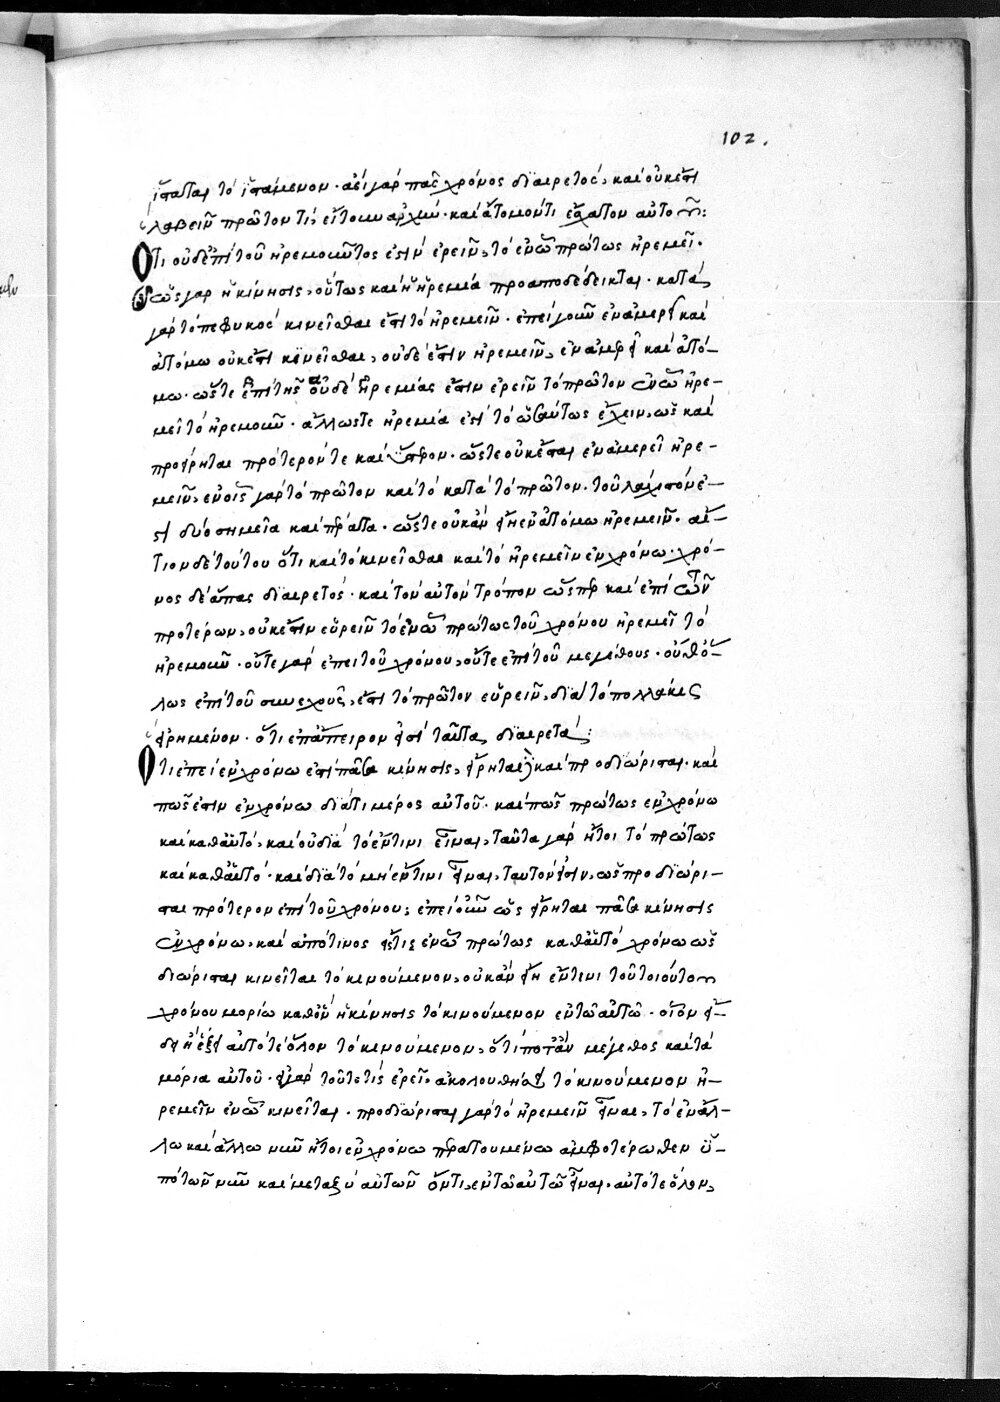 102.
ἵσταται τὸ ἱστάμενον· ἀεὶ γὰρ πᾶς χρόνος διαιρετός, καὶ οὐκ ἔστι
λαβεῖν πρῶτόν τι, εἴτουν ἀρχὴν· καὶ ἄτομόν τι ἔσχατον αὐτοῦ:
Ὅτι οὐδ' ἐπὶ τοῦ ἠρεμοῦντος ἐστὶν ἐρεῖν, τὸ ἐν ᾧ πρώτως ἠρεμεῖ·
ὡς γὰρ ἡ κίνησις, οὕτως καὶ ἡ ἠρεμία προαποδέδεικται· κατὰ
γὰρ τὸ πεφυκὸς κινεῖσθαι ἐστὶ τὸ ἠρεμεῖν· ἐπεὶ γοῦν ἐν ἀμερεῖ καὶ
ἀτόμω οὐκ ἔστι κινεῖσθαι, οὐδὲ ἔστιν ἠρεμεῖν, ἐν ἀμερεῖ καὶ ἀτό-
μω· ὥστε ἐπὶ τῆς οὐδὲ ἠρεμίας ἔστιν ἐρεῖν τὸ πρῶτον ἐν ᾧ ἠρε-
μεῖ τὸ ἠρεμοῦν· ἄλλως τε ἠρεμία ἐστὶ τὸ ὡσαύτως ἔχειν, ὡς καὶ
προείρηται πρότερόν τε καὶ ὕστερον· ὥστε οὐκ ἔσται ἐν ἀμερεῖ ἠρε-
μεῖν, ἐν οἷς γὰρ τὸ πρῶτον καὶ τὸ κατὰ τὸ πρῶτον· τοὐλάχιστόν ἐ-
στι δύο σημεῖα καὶ πέρατα· ὥστε οὐκ ἂν εἴη ἐν ἀτόμω ἠρεμεῖν· αἴ-
τιον δὲ τούτου ὅτι καὶ τὸ κινεῖσθαι καὶ τὸ ἠρεμεῖν ἐν χρόνω· χρό-
νος δὲ ἅπας διαιρετός· καὶ τὸν αὐτὸν τρόπον ὥσπερ καὶ ἐπὶ τῶν
προτέρων, οὐκ ἔστιν εὑρεῖν τὸ ἐν ᾧ πρώτως τοῦ χρόνου ἠρεμεῖ τὸ
ἠρεμοῦν· οὔτε γὰρ ἐπεὶ τοῦ χρόνου, οὔτε ἐπὶ τοῦ μεγέθους· οὔθ' ὅ-
λως ἐπὶ τοῦ συνεχοῦς, ἔστι τὸ πρῶτον εὑρεῖν, διὰ τὸ πολλάκις
εἰρημένον· ὅτι ἐπάπειρον εἰσὶ ταῦτα διαιρετά:
Ὅτι ἐπεὶ ἐν χρόνω ἐστὶ πᾶσα κίνησις, εἴρηται καὶ προδιώρισται· καὶ
πῶς ἐστιν ἐν χρόνω διά τι μέρος αὐτοῦ· καὶ πῶς πρώτως ἐν χρόνω
καὶ καθαυτό, καὶ οὐ διὰ τὸ ἔν τινι εἶναι, ταῦτα γὰρ ἤτοι τὸ πρώτως
καὶ καθ' αὑτό· καὶ διὰ τὸ μὴ ἔν τινι εἶναι, ταυτόν εἰσιν, ὡς προδιώρι-
σται πρότερον ἐπὶ τοῦ χρόνου: ἐπεὶ οὖν ὡς εἴρηται πᾶσα κίνησις
ἐν χρόνω, καὶ ἀπό τινος εἴς τι, ἐν ᾧ πρώτως καθ' αὑτό χρόνω ὡς
διώρισται κινεῖται τὸ κινούμενον, οὐκ ἂν εἴη ἔν τινι τοῦ τοιούτου
χρόνου μορίω καθ' ὃν ἡ κίνησις τὸ κινούμενον ἐν τῶ αὐτῶ· οἷον εἴ-
δη ἢ ἕξει αὐτό τε ὅλον τὸ κινούμενον, ὅ τί ποτ' ἂν μέγεθος καὶ τὰ
μόρια αὐτοῦ· εἰ γὰρ τοῦτέ τις ἐρεῖ· ἀκολουθήσει τὸ κινούμενον ἠ-
ρεμεῖν ἐν ᾧ κινεῖται· προδιώρισται γὰρ τὸ ἠρεμεῖν εἶναι, τὸ ἐν ἄλ-
λω καὶ ἄλλω νῦν ἤτοι ἐν χρόνω περατουμένω ἀμφοτέρωθεν ὑ-
πὸ τῶν νῦν καὶ μεταξὺ αὐτῶν ὄντι, ἐν τῶ αὐτῶ εἶναι· αὐτό τε ὅλον,